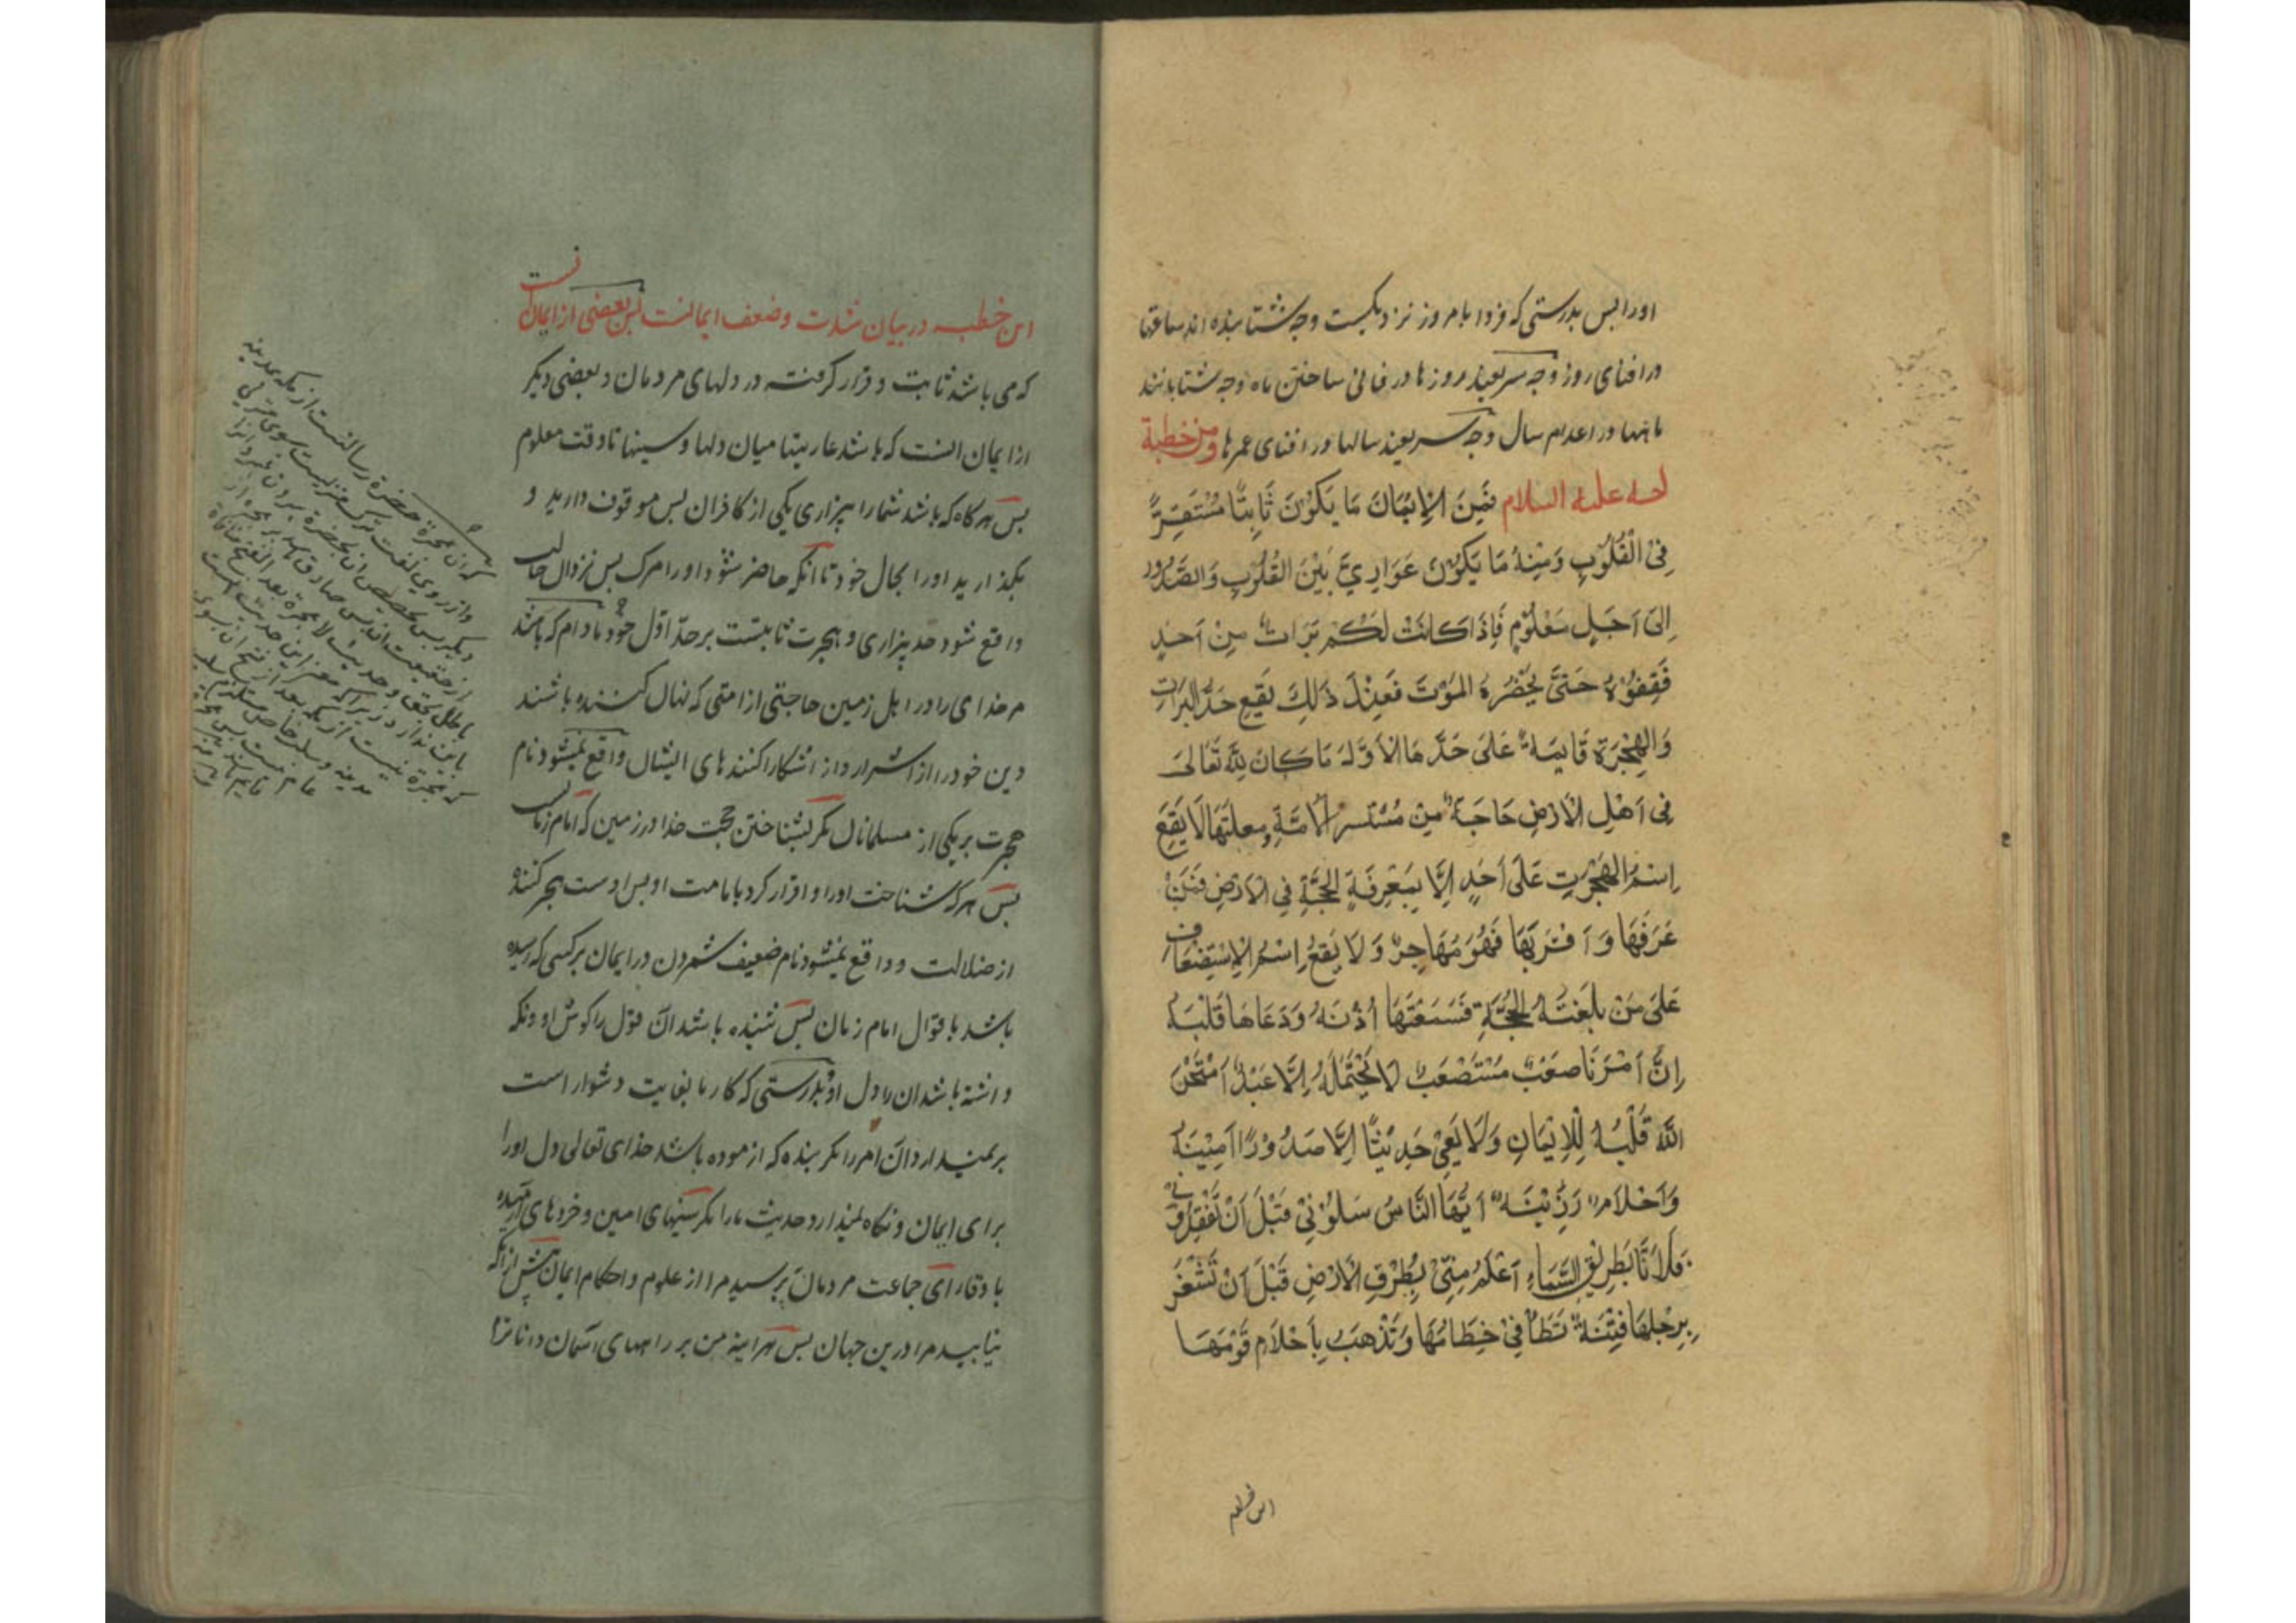 اورا بس بدرستی که فردا بامروز نزدیکست وچه شتابنده اند ساعتها
در افنای روز وچه سریعند روزها در فانی ساختن ماه وچه شتابدنند
ماهها در اعدام سال وچه سریعند سالها در افنای عمرها ومن خطبة
له علیه السلام فَمِنَ الْاِیْمَانِ مَا یَکُوْنُ ثَابِتًا مُسْتَقِرًّا
فِیْ الْقُلُوْبِ وَمِنْهُ مَا یَکُوْنُ عَوَارِیَّ بَیْنَ القُلُوْبِ وَالصُّدُوْر
اِلیٰ اَجَلٍ مَعْلُوْمٍ فَاِذَا کَانَتْ لَکُمْ بَرَاتٌ مِنْ اَحَدٍ
فَقِفُوْهُ حَتَّیٰ یَحْضُرَهُ المَوْتَ فَعِنْدَ ذٰلِكَ یَقَعِ حَدُّ البَرَاتِ
وَالهِجْرَة قَایِمَةٌ عَلیٰ حَدِّهَا الْاَوَّلِ مَا کَانَ لِلّٰه تَعَالیٰ
فِی اَهْلِ الْاَرْضِ حَاجَةٌ مِنْ مُسْتَسِرِّ الْاُمَّةِ ومعلنها لَا یَقَعُ
اِسْمُ الهِجْرَتِ عَلیٰ اَحَدٍ اِلَّا بِمَعْرِفَةِ الحُجَّةِ فِی الْاَرْضِ فَمَنْ
عَرَفَهَا وَاَقْرَبِّهَا فَهُوَ مُهَاجِرٌ وَلَا یَقَعُ اِسْمُ الْاِسْتِضْعَاف
عَلیٰ مَنْ بَلَغَتْهُ الحُجَّةِ فَسَمَعَتْهَا اُذْنَهُ وَدَعَاهَا قَلْبُهُ
اِنَّ اَمْرَنَا صَعْبٌ مُسْتَصْعَبٌ لَا یَحْتَمِلُهُ اِلَّا عَبْدٌ اَمْتَحَنَ
اللّٰهُ قَلْبُهُ لِلْاِیْمَانِ وَلَا یَعِیْ حَدِیْثَنَا اِلَّا صُدُوْرًا اَمِیْنَةٌ
وَاَحْلَامٌ رَزِیْنَةٌ اَیُّهَا النَّاسُ سَلُوْنِیْ قَبْلَ اَنْ تَفْقِدُوْنِی
فَلَاَنَا بِطَرِیْقِ السَّمَاءِ اَعْلَمُ مِنِّیْ بِطُرُقِ الْاَرْضِ قَبْلَ اَنْ تَشْغَرَ
بِرِجْلِهَا فِتْنَةٌ تَطَأُ فِیْ خِطَامُهَا وَتَذْهَبُ بِاَحْلَامِ قَوْمُهَا
این خطبه
این خطبه در بیان شدت وضعف ایمانست بس بعضی از ایمان انست
که می باشد ثابت و قرار گرفته در دلهای مردمان و بعضی دیگر
از ایمان انست که باشد عاریتها میان دلها و سینها تا وقت معلوم
بس هرگاه که باشد شما را بیزاری یکی از کافران بس موقوف دارید و
بگذارید اورا بحال خود تا انکه حاضر شود اورا مرک بس نزد ان حالت
واقع شود حد بیزاری و هجرت ثابتست بر حدّ اوّل خود مادام که باشد
مر خدای را در اهل زمین حاجتی از امتی که نهان کننده باشند
دین خود را از اشرار و از اشکارا کنندهای ایشان واقع نمیشود نام
هجرت بر یکی از مسلمانان مکر بشناختن حجت خدا در زمین که امام زمانست
بس هرکه شناخت اورا و اقرار کرد بامامت او بس اوست هجرکننده
از ضلالت و واقع نمیشود نام ضعیف شمردن در ایمان بر کسی که رسیده
باشد باقوال امام زمان بس شنیده باشد ان قول را کوش او و نکه
داشته باشد ان را دل او بدرستی که کار ما بغایت دشوار است
بر نمیدارد ان امر را مکر بنده که ازموده باشد خدای تعالی دل اورا
برای ایمان و نگاه نمیدارد حدیث ما را مکر سینهای امین و خردهای آرمیده
با وقار ای جماعت مردمان بپرسید مرا از علوم و احکام ایمان پیش از انکه
نیابید مرا درین جهان بس هراینه من بر راههای آسمان داناترم